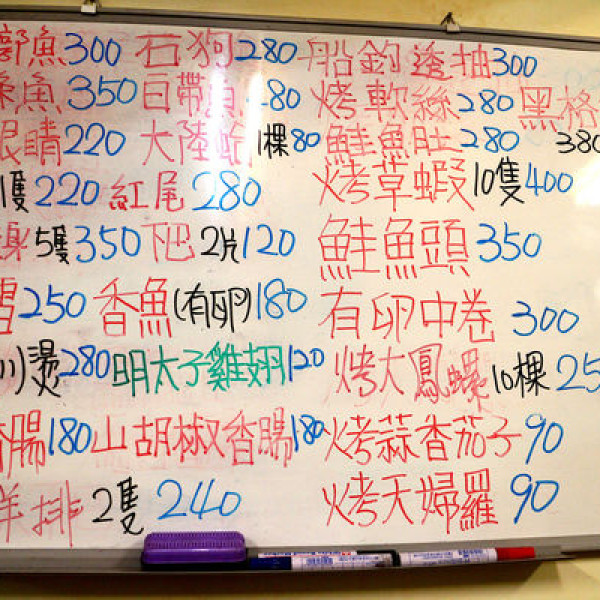 魚300 石狗280 船釣透抽300
魚350 白帶魚280 烤軟絲280 黑格
眼睛220 大陸蚵1棵80 鮭魚肚280 380
1隻220 紅尾280 烤草蝦10隻400
5隻350 下巴2片120 鮭魚頭350
雪250 香魚(有卵)180 有卵中卷300
川燙280 明太子雞翅120 烤大鳳螺10棵25
香腸180 山胡椒香腸180 烤蒜香茄子90
羊排2隻240 烤天婦羅90